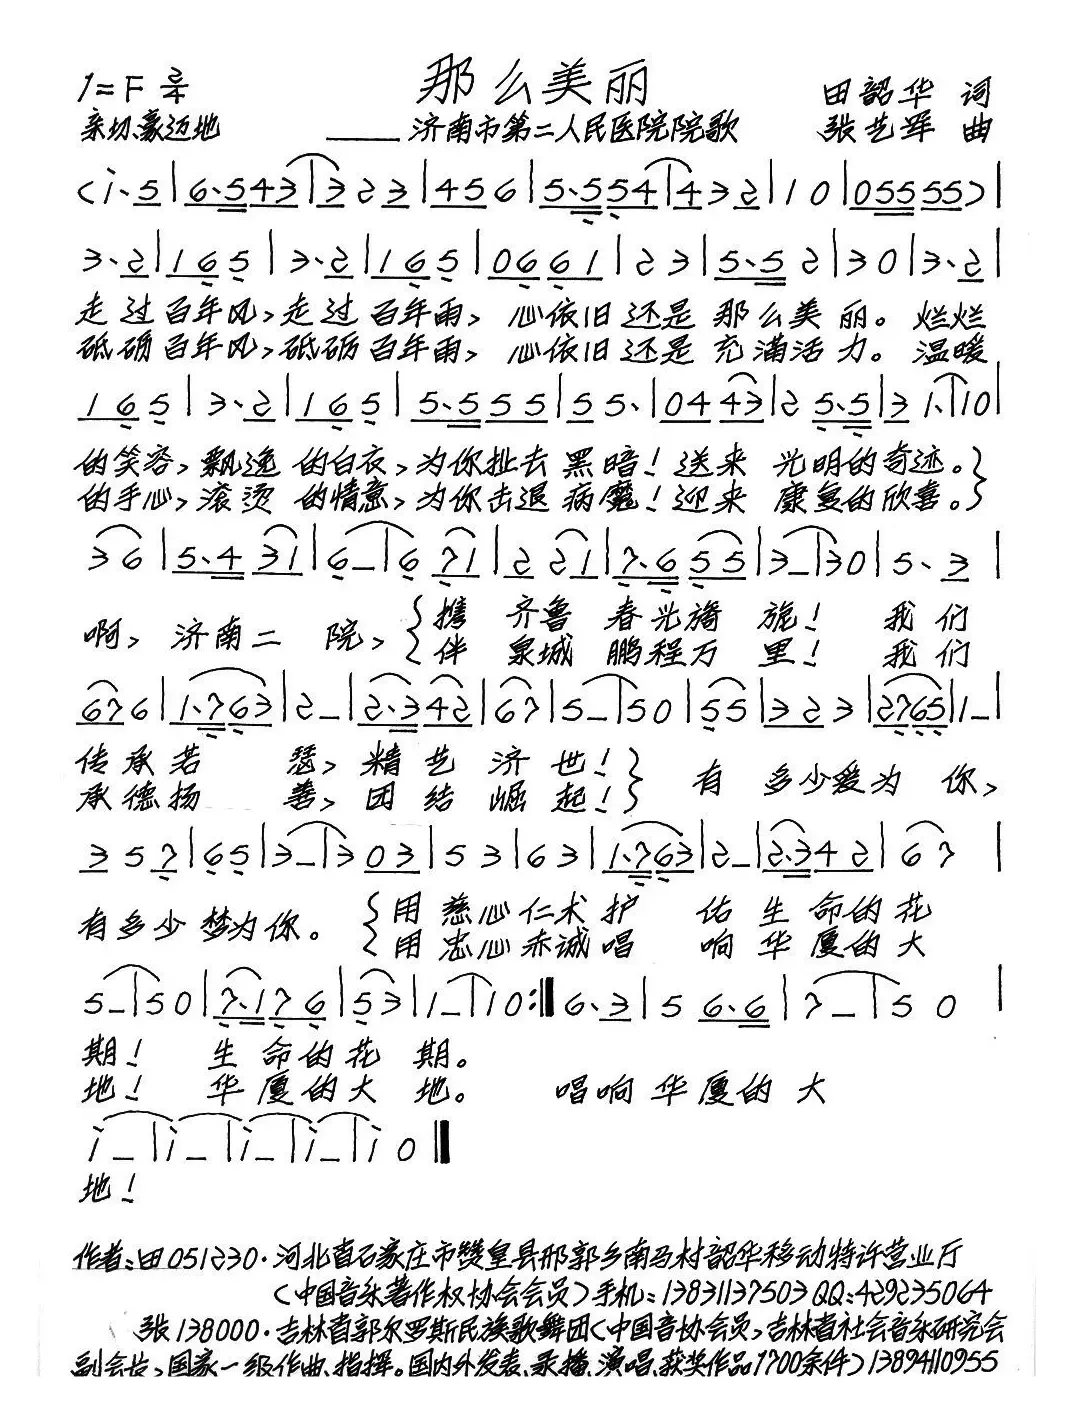 1=F 2/4 那么美丽 田韶华 词
亲切、豪迈地 ——济南市第二人民医院院歌 张艺军 曲
(i·5|6·543|323|456|5·554|432|10|05555)|
3·2|165|3·2|165|0661|23|5·52|30|3·2|
走过百年风,走过百年雨,心依旧还是那么美丽。烂烂
砥砺百年风,砥砺百年雨,心依旧还是充满活力。温暖
165|3·2|165|5·555|55·|0443|25·5|31·|10|
的笑容,飘逸的白衣,为你扯去黑暗!送来光明的奇迹。}
的手心,滚烫的情意,为你击退病魔!迎来康复的欣喜。}
36|5·431|6—|671|221|7·655|3—|30|5·3|
啊,济南二院,{携齐鲁春光旖旎!我们
{伴泉城鹏程万里!我们
676|1·763|2—|2·342|67|5—|50|55|323|2765|1—|
传承若瑟,精艺济世!} 有多少爱为你,
承德扬善,团结崛起!}
357|65|3—|303|53|63|1·763|2—|2·342|67|
有多少梦为你。{用慈心仁术护佑生命的花
{用忠心赤诚唱响华厦的大
5—|50|7·176|53|1—|10:‖6·3|56·6|7—|50|
期!生命的花期。
地!华厦的大地。 唱响华厦的大
i—|i—|i—|i—|i0‖
地!
作者:田051230·河北省石家庄市赞皇县邢郭乡南马村韶华移动特许营业厅
(中国音乐著作权协会会员)手机:13831137503 QQ:429235064
张138000·吉林省郭尔罗斯民族歌舞团(中国音协会员,吉林省社会音乐研究会
副会长,国家一级作曲、指挥。国内外发表、录播、演唱、获奖作品1700余件)13894110955